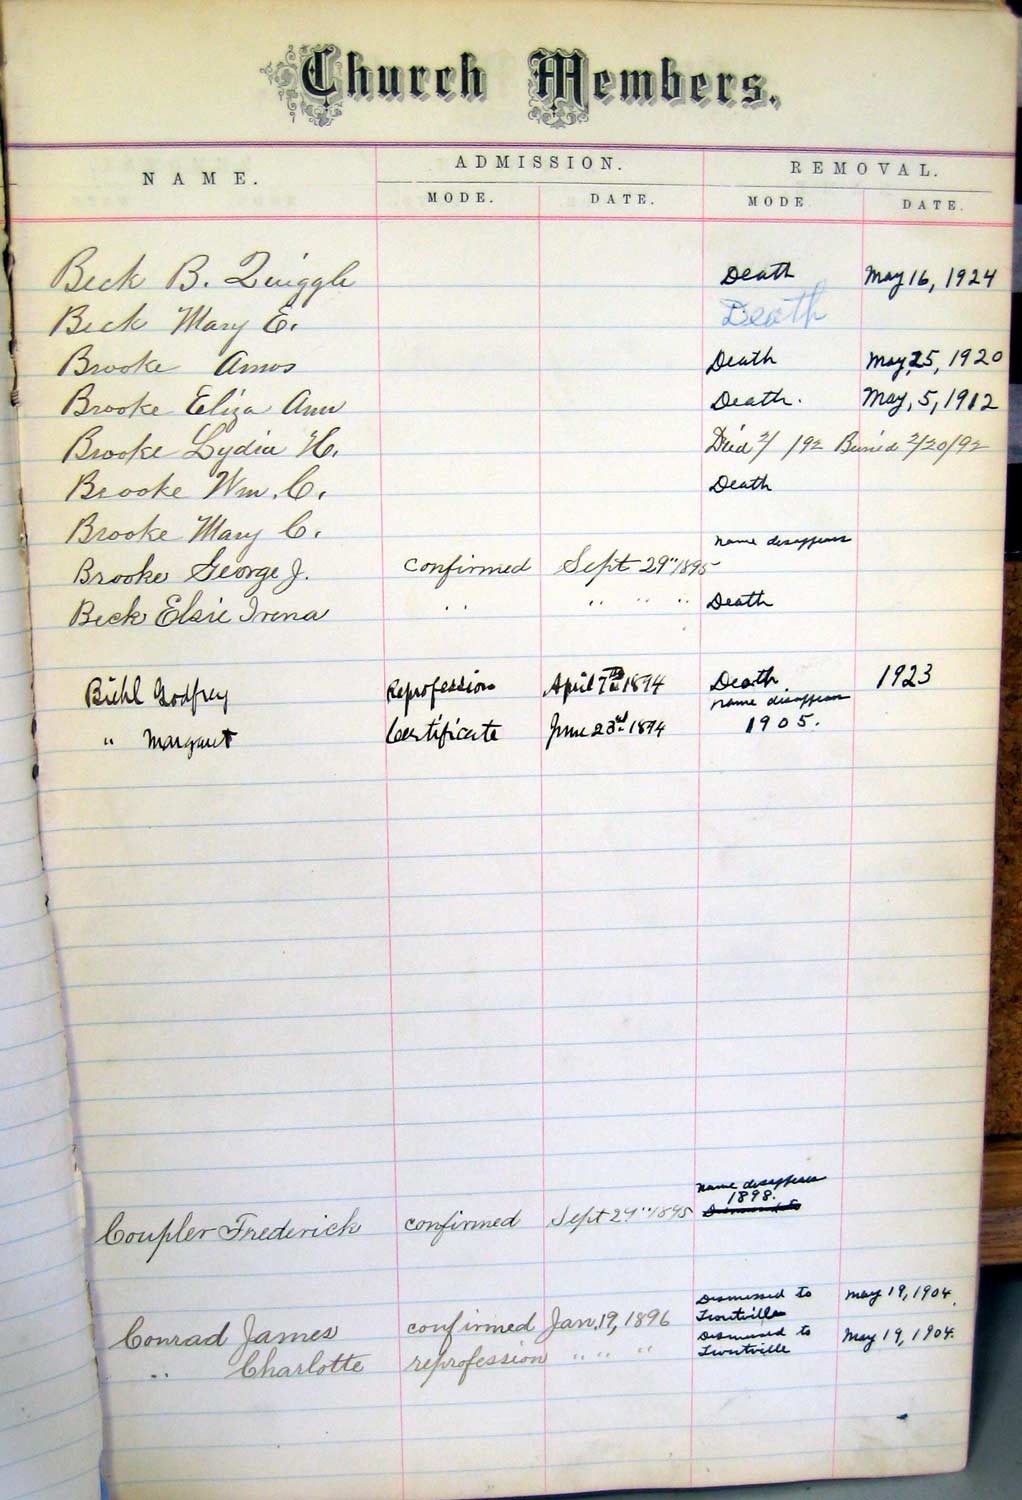 Church Members.
NAME. ADMISSION. REMOVAL.
MODE. DATE. MODE DATE.
Beck B. Quiggle Death May 16, 1924
Beck Mary E. Death
Brooke Amos Death May, 25, 1920
Brooke Eliza Ann Death. May, 5, 1912
Brooke Lydia H. Died 2/ /92 Buried 2/20/92
Brooke Wm. C. Death
Brooke Mary C. name disappears
Brooke George J. confirmed Sept 29" 1895
Beck Elsie Irena " " " " Death
Biehl Godfrey Reprofession April 7th 1894 Death 1923
name disappears
" Margaret Certificate June 23rd 1894 1905.
Name disappears
1898.
Coupler Frederick confirmed Sept 29" 1895 Dismissed to
Dismissed to May 19, 1904.
Conrad James confirmed Jan. 19, 1896 Troutville
Dismissed to May 19, 1904.
" Charlotte reprofession " " " Troutville